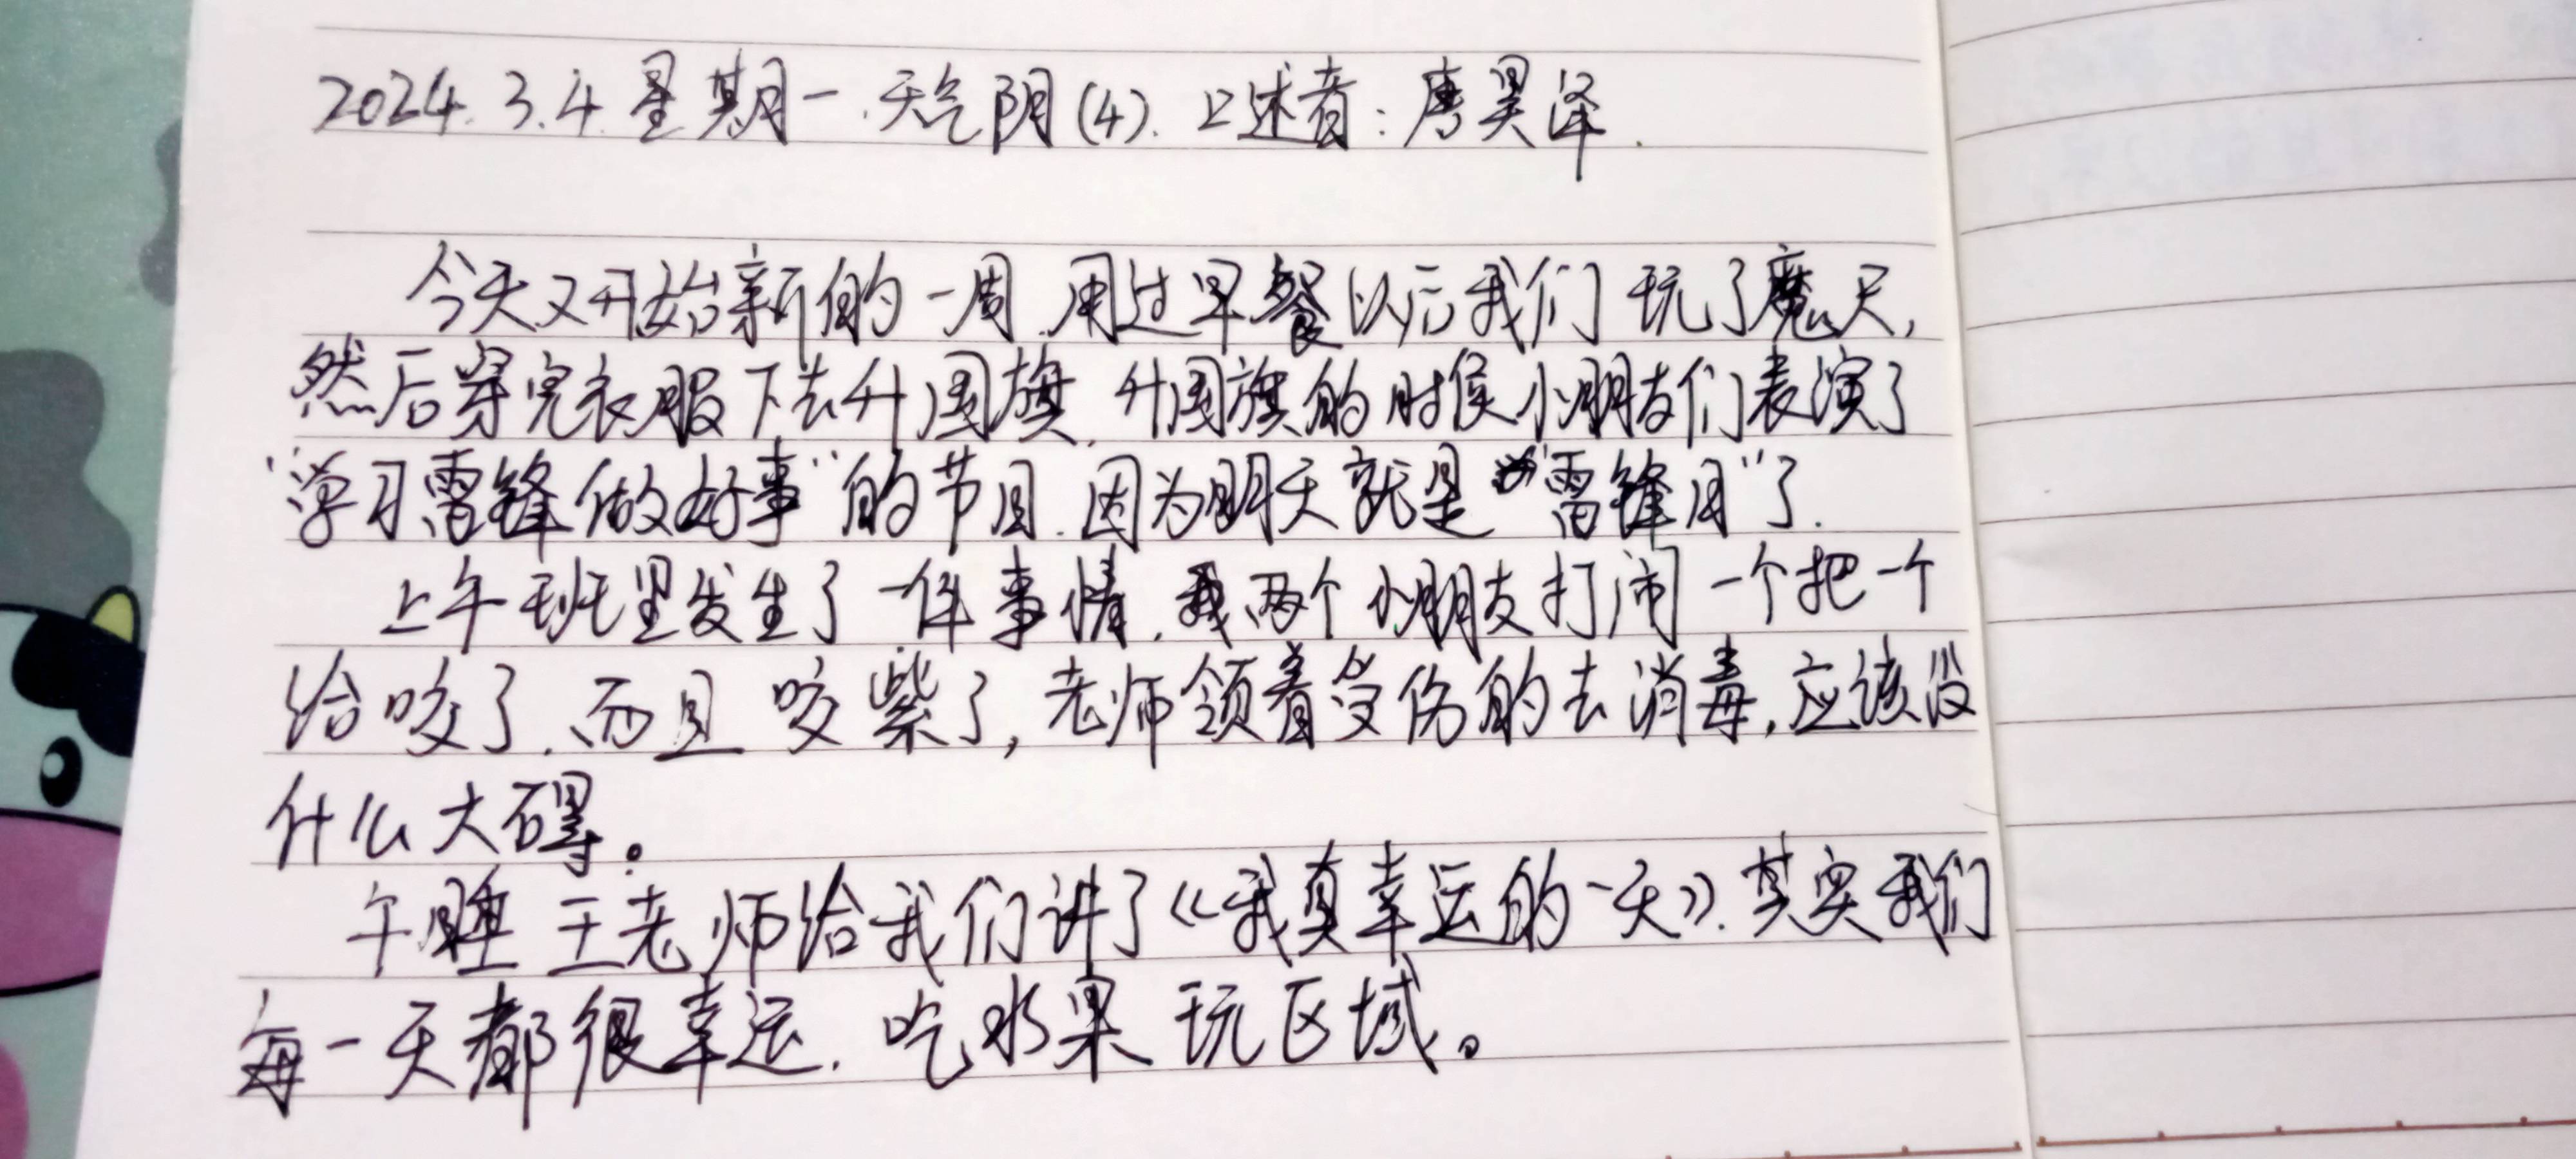 2024.3.4.星期一.天气阴(4).口述者:唐昊泽.
今天又开始新的一周.用过早餐以后我们玩了魔尺,
然后穿完衣服下去升国旗,升国旗的时侯小朋友们表演了
“学习雷锋做好事”的节目.因为明天就是“雷锋月”了.
上午班里发生了一件事情,两个小朋友打闹一个把一个
给咬了.而且咬紫了,老师领着受伤的去消毒,应该没
什么大碍。
午睡王老师给我们讲了《我真幸运的一天》.其实我们
每一天都很幸运.吃水果玩区域。